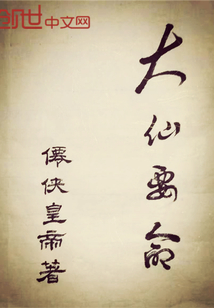 创世中文网
大仙要命
僊侠皇帝著